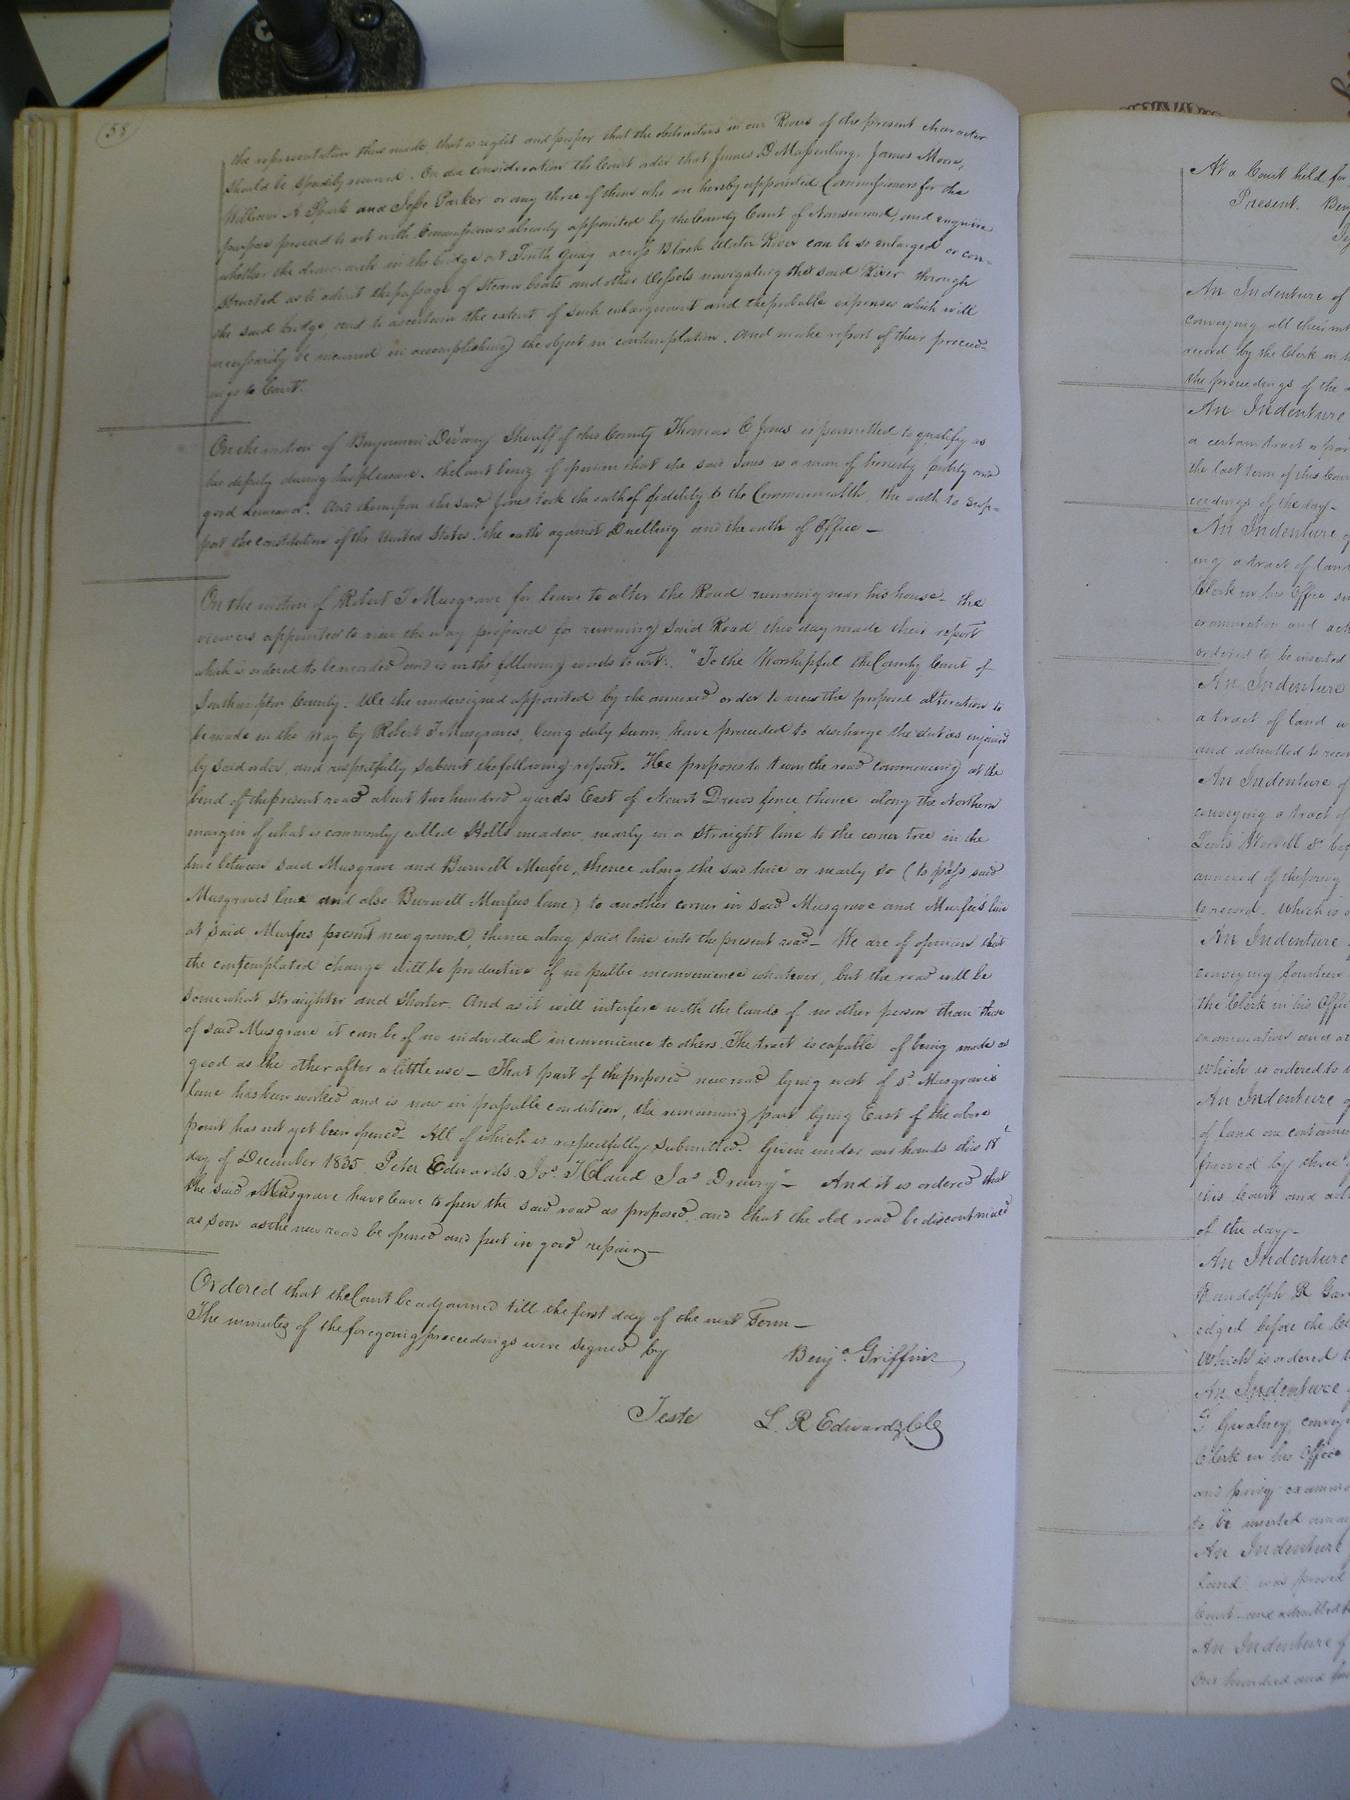 58
the representation thus made, that is right and proper that the obstructions in our Rivers of the present character
should be speedily removed. On due consideration the Court order that James D Massenburg, James Moore,
William A Spark and Jesse Parker or any three of them who are hereby appointed Commissioners for the
purpose proceed to act with Commissioners already appointed by the County Court of Nansemond, and enquire
whether the draw arch in the bridge at South Quay across Black Water River can be so enlarged or con=
structed as to admit the passage of Steam boats and other Vessels navigating the said River through
the said bridge, and to ascertain the extent of such enlargement and the probable expenses which will
necessarily be incurred in accomplishing the object in contemplation. And make report of their proceed=
ings to Court.
On the motion of Benjamin Devany Sheriff of this County Thomas C Jones is permitted to qualify as
his deputy during his pleasure. the Court being of opinion that the said Jones is a man of honesty probity and
good demeanor. And thereupon the said Jones took the oath of fidelity to the Commonwealth, the oath to sup=
port the constitution of the United States. the oath against Duelling and the oath of Office —
On the motion of Robert T Musgrave for leave to alter the Road running near his house - the
viewers appointed to view the way proposed for running said Road this day made their report
which is ordered to be recorded and is in the following words to wit: "To the Worshipful the County Court of
Southampton County. We the undersigned appointed by the annexed order to view the proposed alteration to
be made in the way by Robert T Musgraves, being duly sworn, have proceeded to discharge the duties enjoined
by said order, and respectfully submit the following report. He proposes to turn the road commencing at the
bend of the present road about two hundred yards East of Newit Drews fence thence along the Northern
margin of what is commonly called Holts meadow, nearly in a straight line to the corner tree in the
line between said Musgrave and Burwell Murfee, thence along the said line or nearly so (to pass said
Musgraves lane and also Burwell Murfees lane) to another corner in said Musgrave and Murfee's line
at said Murfees present new ground, thence along said line into the present road - We are of opinion that
the contemplated change will be productive of no public inconvenience whatever, but the road will be
somewhat straighter and shorter. And as it will interfere with the lands of no other person than those
of said Musgrave it can be of no individual inconvenience to others. The tract is capable of being made as
good as the other after a little use — That part of the proposed new road lying west of sd Musgrave's
lane has been worked and is now in passable condition, the remaining part lying East of the above
point has not yet been opened - All of which is respectfully submitted. Given under our hands this
day of December 1835. Peter Edwards Jos. T Claud Jas Drewry" — And it is ordered that
the said Musgrave have leave to open the said road as proposed, and that the old road be discontinued
as soon as the new road be opened and put in good repair —
Ordered that the Court be adjourned till the first day of the next Term —
The minutes of the foregoing proceedings were signed by
Benja. Griffin
Teste L. R Edwards Clk
At a Court held for
Present. Benj
An Indenture of
conveying all their int
record by the Clerk in h
the proceedings of the
An Indenture
a certain tract or par
the last term of this Cour
ceedings of the day -
An Indenture of
ing a tract of land
Clerk in his Office
examination and ack
ordered to be inserted
An Indenture
a tract of land
and admitted to reco
An Indenture of
conveying a tract of
to record. which is
An Indenture
conveying fourteen
the Clerk in his Offi
examination and
which is ordered to
An Indenture of
of land
proved by three
this Court and ad
of the day -
An Indenture
Randolph R
edged before the Cl
Which is ordered
An Indenture
T Gwaltney convey
Clerk in his Office
and privy examin
to be inserted
An Indenture
land was proved
Court and admitted
An Indenture of
One hundred and